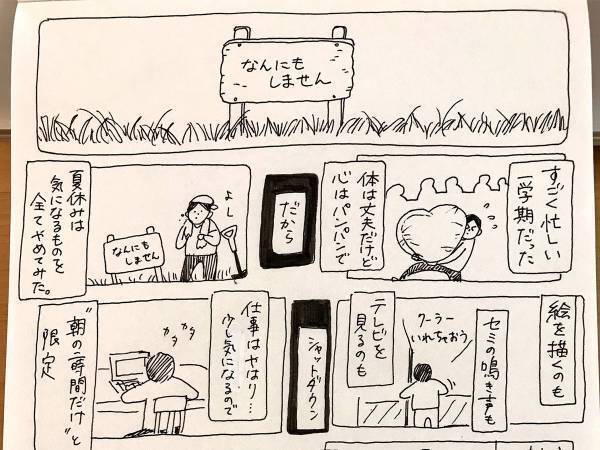 なんにも
しません
すごく忙しい
一学期だった
体は丈夫だけど
心はパンパンで
だから
よし
なんにも
しません
夏休みは
気になるものを
全てやめてみた。
絵を描くのも
セミの鳴き声も
クーラー
いれちゃおう
テレビを
見るのも
シャットダウン
仕事はやはり…
少し気になるので
カタ
カタ
"朝の一時間だけ"と
限定